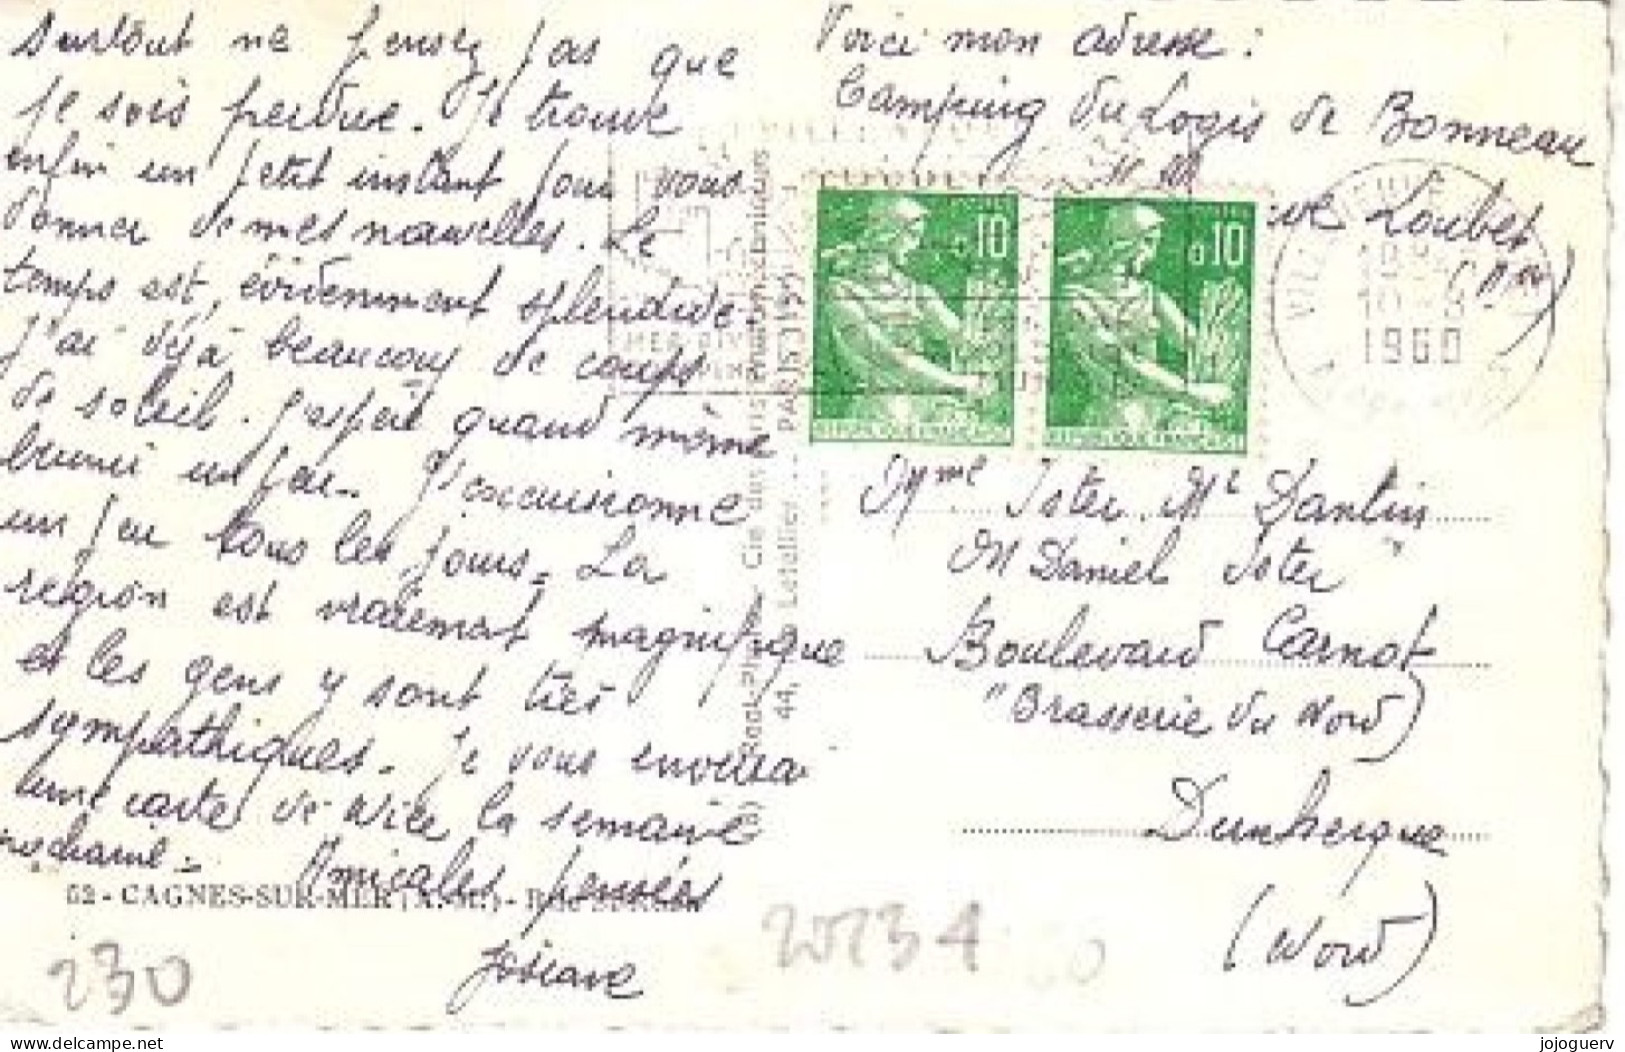 surtout ne pensez pas que
je sois perdue. Je trouve
enfin un petit instant pour vous
donner de mes nouvelles. Le
temps est, évidemment splendide
J'ai déjà beaucoup de coups
de soleil. J'espère quand même
brunir un peu. J'excursionne
un peu tous les jours. La
région est vraiment magnifique
et les gens y sont très
sympathiques. Je vous enverrai
une carte de Nice la semaine
prochaine. Amicales pensées
Josiane
Voici mon adresse :
Camping du Logis de Bonneau
Loubet
(AM)
0,10
0,10
REPUBLIQUE FRANÇAISE
REPUBLIQUE FRANÇAISE
1960
Mme Ister Mr Dantin
M Daniel Ister
Boulevard Carnot
"Brasserie du Nord"
Dunkerque
(Nord)
Cie des Arts Photomécaniques
44, Letellier - PARIS
52 - CAGNES-SUR-MER (A.-M.) - Rue
230
20234
jojoguerv
www.delcampe.net